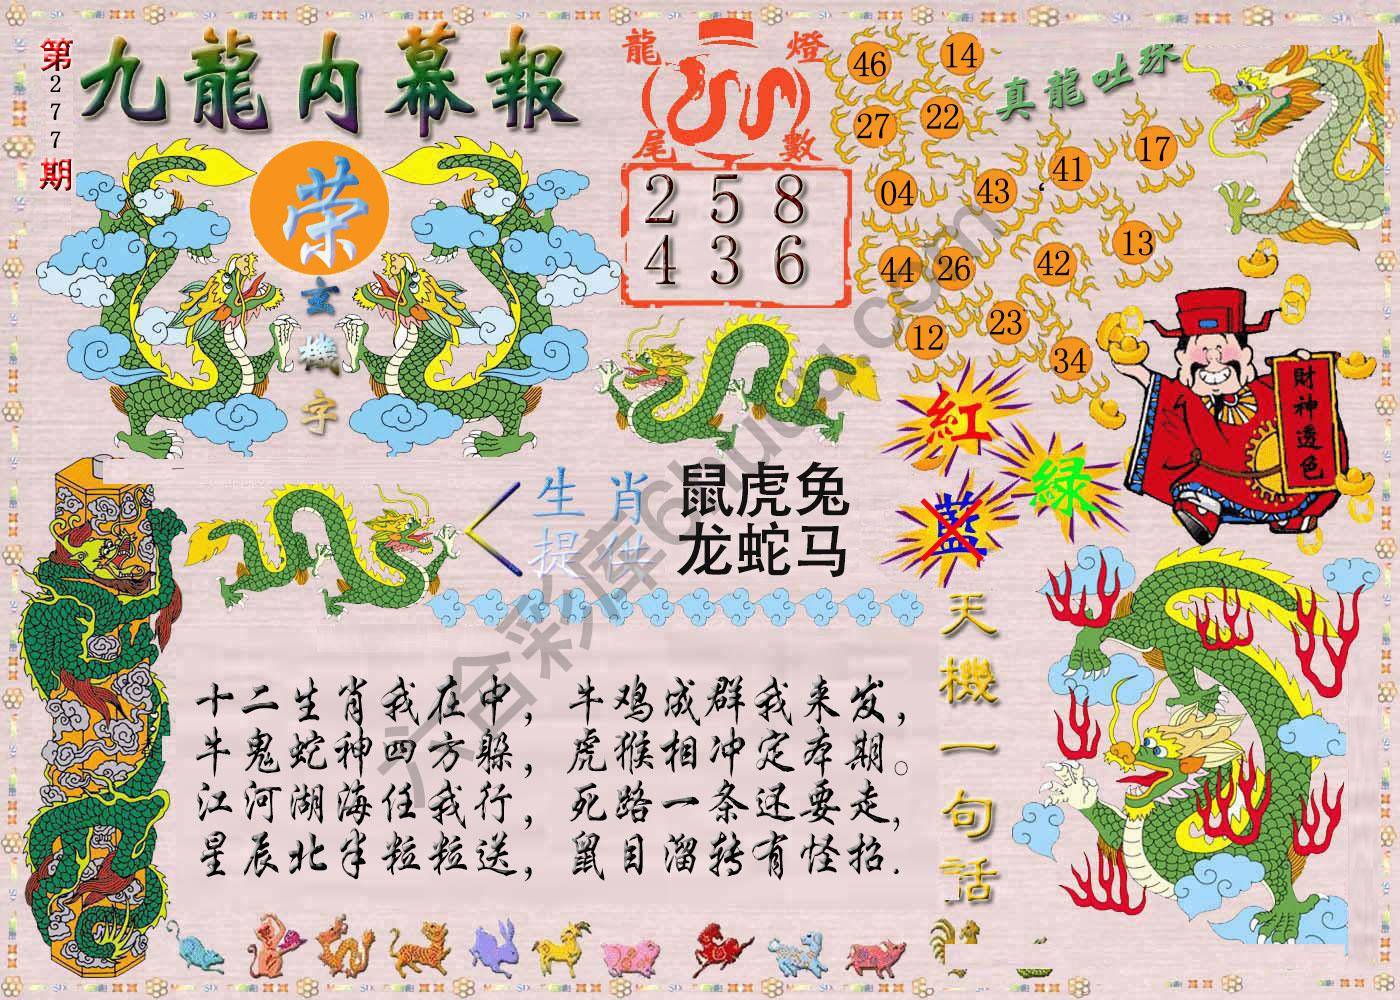 第277期
九龍内幕報
荣
玄機字
龍燈
尾數
2 5 8
4 3 6
真龍吐珠
46 14
27 22
41 17
04 43
44 26 42 13
12 23
34
財神透色
紅
绿
藍
生肖
提供
鼠虎兔
龙蛇马
天機一句话
十二生肖我在中，牛鸡成群我来发，
牛鬼蛇神四方躲，虎猴相冲定本期。
江河湖海任我行，死路一条还要走，
星辰北半粒粒送，鼠目溜转有怪招.
六合彩库6hudd.com